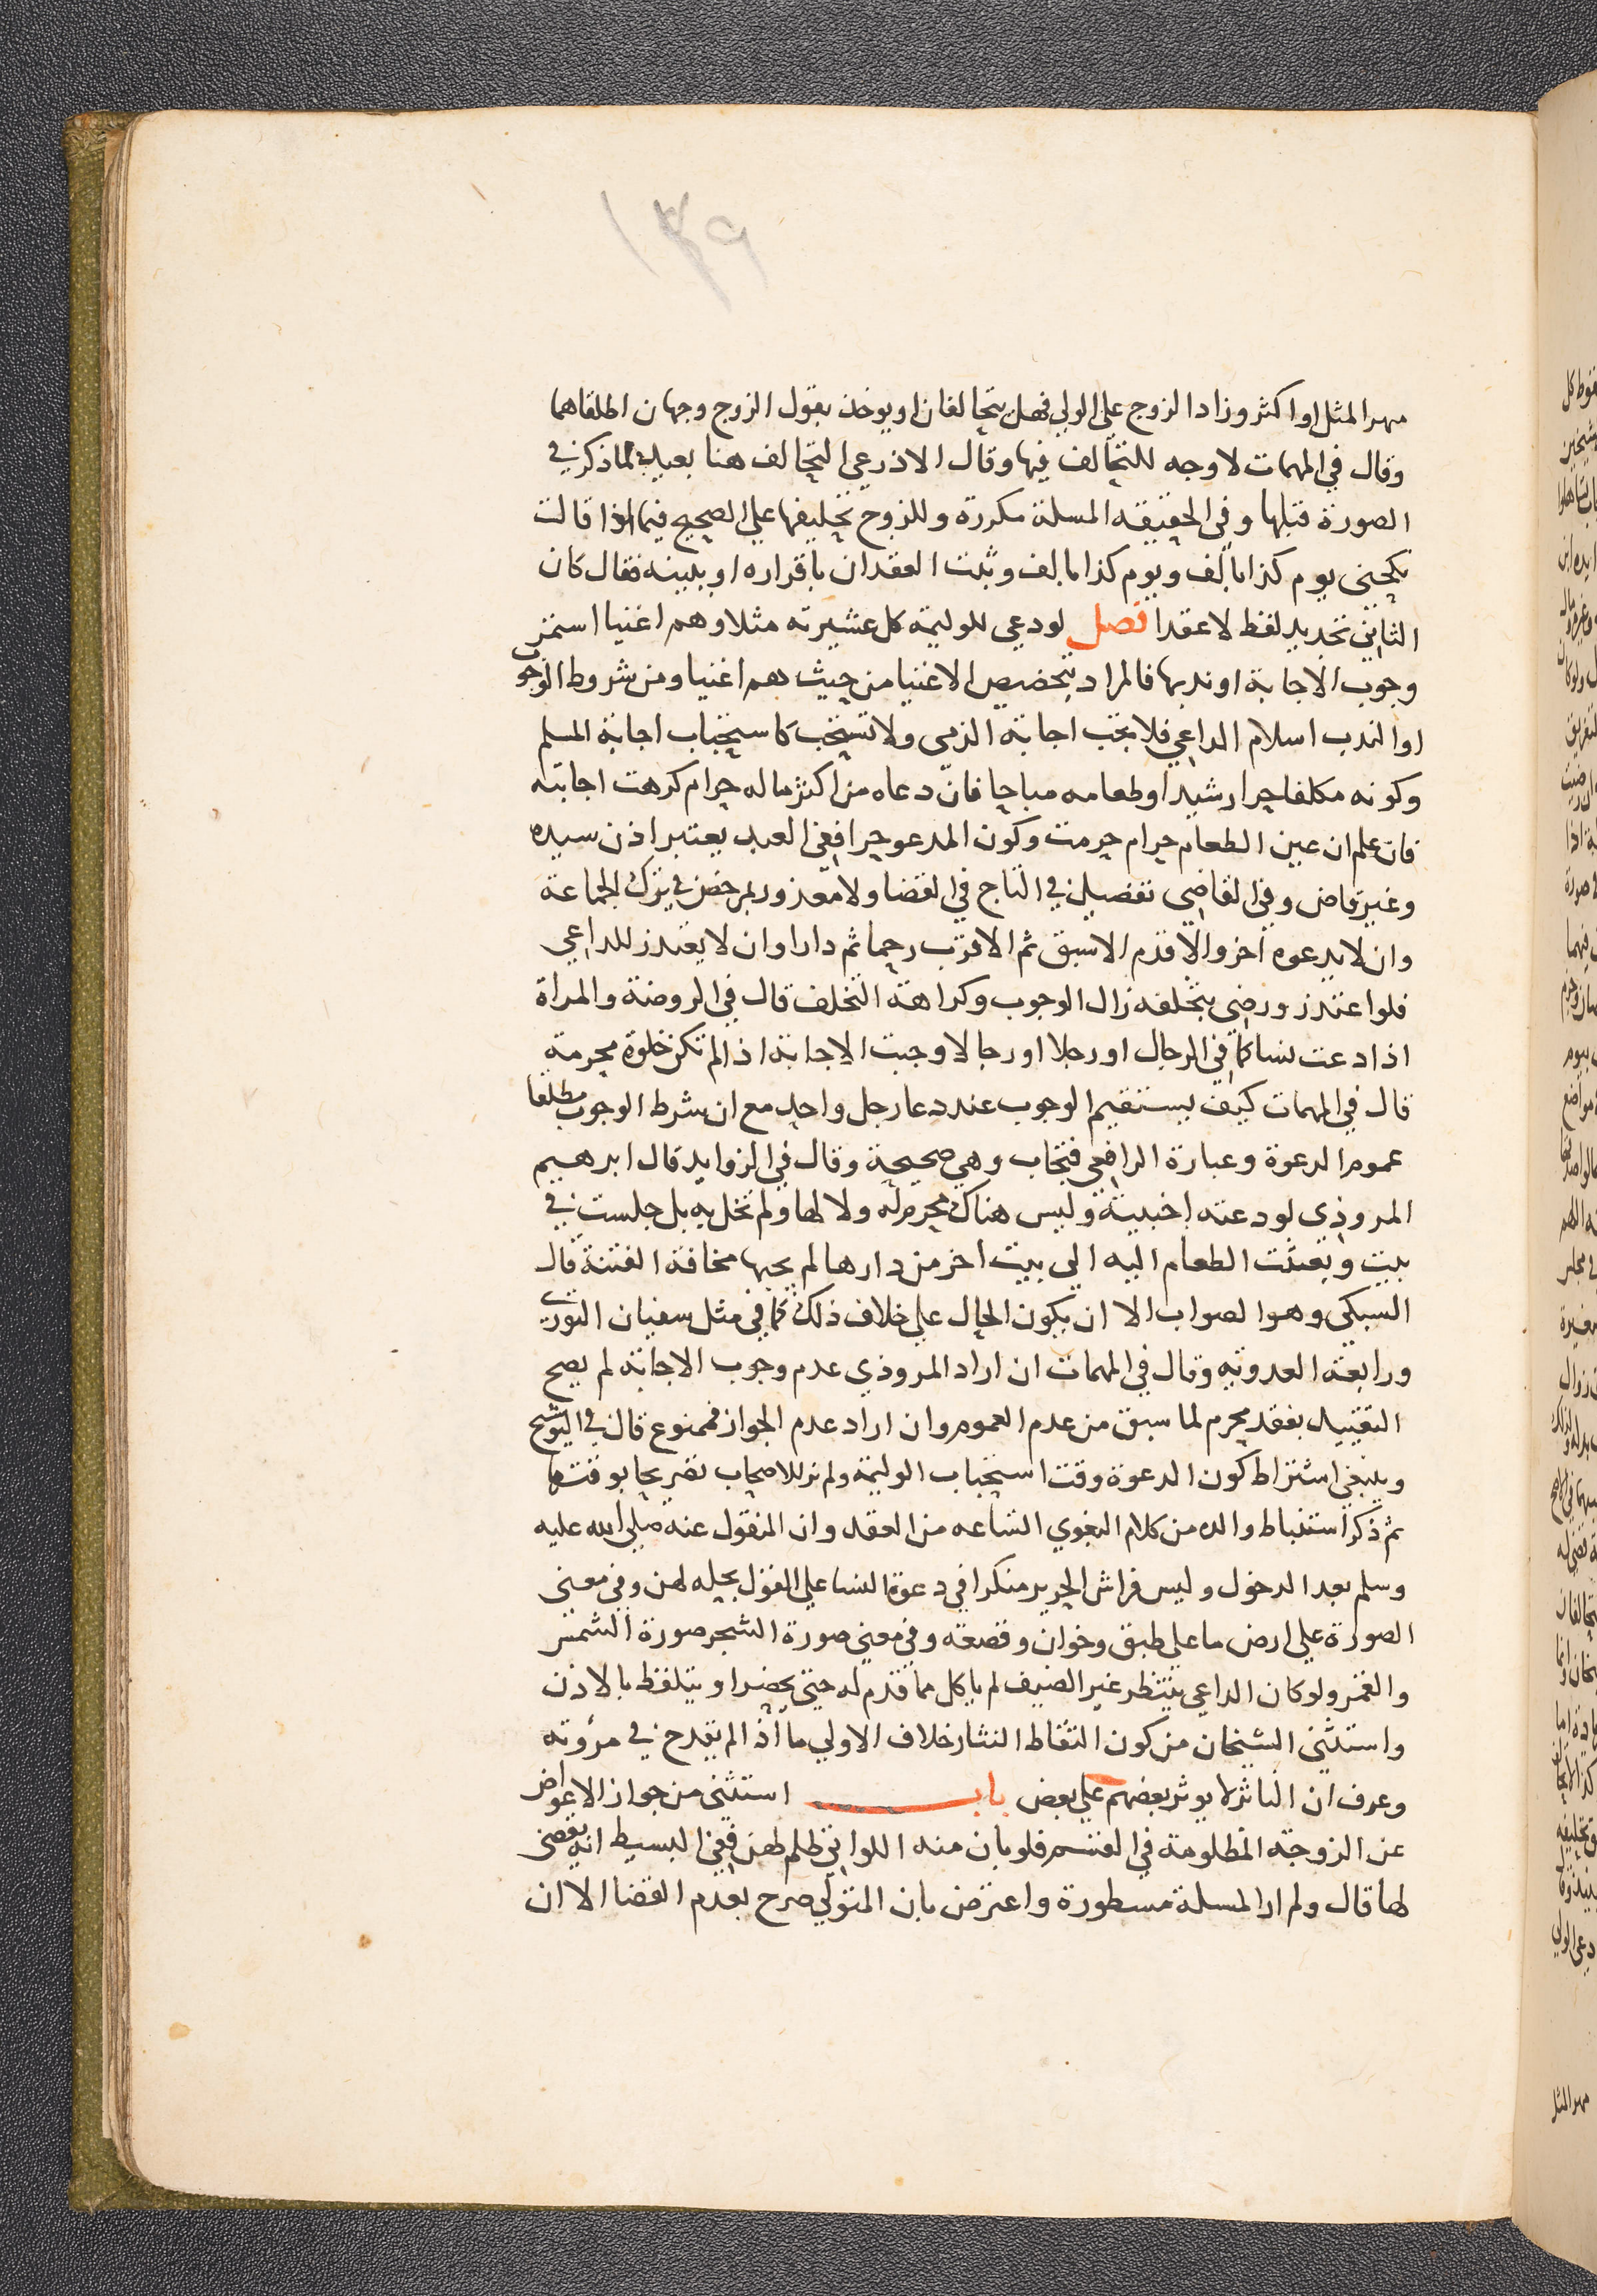 ١٣٩
مهر المثل او اكثر وزاد الزوج علي الولي فهل يتحالفان او يوخذ بقول الزوج وجهان اطلقاهما
وقال في المهمات لا وجه للتحالف فيها وقال الاذرعي التحالف هنا بعيد لما ذكر في
الصورة قبلها وفي الحقيقه المسلة مكررة وللزوج تحليفها علي الصحيح فيما اذا قالت
نكحني يوم كذا بالف ويوم كذا بالف وثبت العقدان باقراره او ببينه فقال كان
الثاني تجديد لفظ لا عقدا فصل لو دعي للوليمة كل عشيرته مثلا وهم اغنيا استمر
وجوب الاجابة او ندبها فالمراد بتخصيص الاغنيا من حيث هم اغنيا ومن شروط الوجوب
او الندب اسلام الداعي فلا تجب اجابة الذمي ولا تستحب كاستحباب اجابة المسلم
وكونه مكلفا حرا رشيدا وطعامه مباحا فان دعاه من اكثر ماله حرام كرهت اجابته
فان علم ان عين الطعام حرام حرمت وكون المدعو حرا ففي العبد يعتبر اذن سيده
وغير قاض وفي القاضي تفصيل في التاج في القضا ولا معذور بمرخص في ترك الجماعة
وان لا يدعوه اخر والا قدم الاسبق ثم الاقرب رحما ثم دارا وان لا يعتذر للداعي
فلو اعتذر ورضي بتخلفه زال الوجوب وكراهة التخلف قال في الروضة والمراة
اذا دعت نسا كما في الرجال او رجلا او رجالا وجبت الاجابة اذا لم تكن خلوة محرمة
قال في المهمات كيف يستقيم الوجوب عند دعا رجل واحد مع ان شرط الوجوب مطلقا
عموم الدعوة وعبارة الرافعي فتجاب وهي صحيحة وقال في الزوايد قال ابرهيم
المروذي لو دعته اجنبية وليس هناك محرم له ولا لها ولم تخل به بل جلست في
بيت وبعثت الطعام اليه الي بيت اخر من دارها لم يجبها مخافة الفتنة قال
السبكي وهو الصواب الا ان يكون الحال علي خلاف ذلك كما في مثل سفيان الثوري
ورابعة العدويه وقال في المهمات ان اراد المروذي عدم وجوب الاجابة لم يصح
التقييد بفقد محرم لما سبق من عدم العموم وان اراد عدم الجواز فممنوع قال في التوشيح
وينبغي اشتراط كون الدعوة وقت استحباب الوليمة ولم نر للاصحاب تصريحا بوقتها
ثم ذكر استنباط والده من كلام البغوي اتساعه من العقد وان المنقول عنه صلى الله عليه
وسلم بعد الدخول وليس فراش الحرير منكرا في دعوة النسا علي القول بحله لهن وفي معني
الصورة علي ارض ما علي طبق وخوان وقصعة وفي معني صورة الشجر صورة الشمس
والقمر ولو كان الداعي ينتظر غير الضيف لم ياكل مما قدم له حتي يحضر او يتلفظ بالاذن
واستثني الشيخان من كون التقاط النثار خلاف الاولي ما اذا لم يقدح في مرؤته
وعرف ان الناثر لا يوثر بعضهم علي بعض باب استثني من جواز الاعراض
عن الزوجة المظلومة في القسم فلو بان منه اللواتي ظلم لهن ففي البسيط انه يقضي
لها قال ولم ار المسلة مسطورة واعترض بان المتولي صرح بعدم القضا الا ان